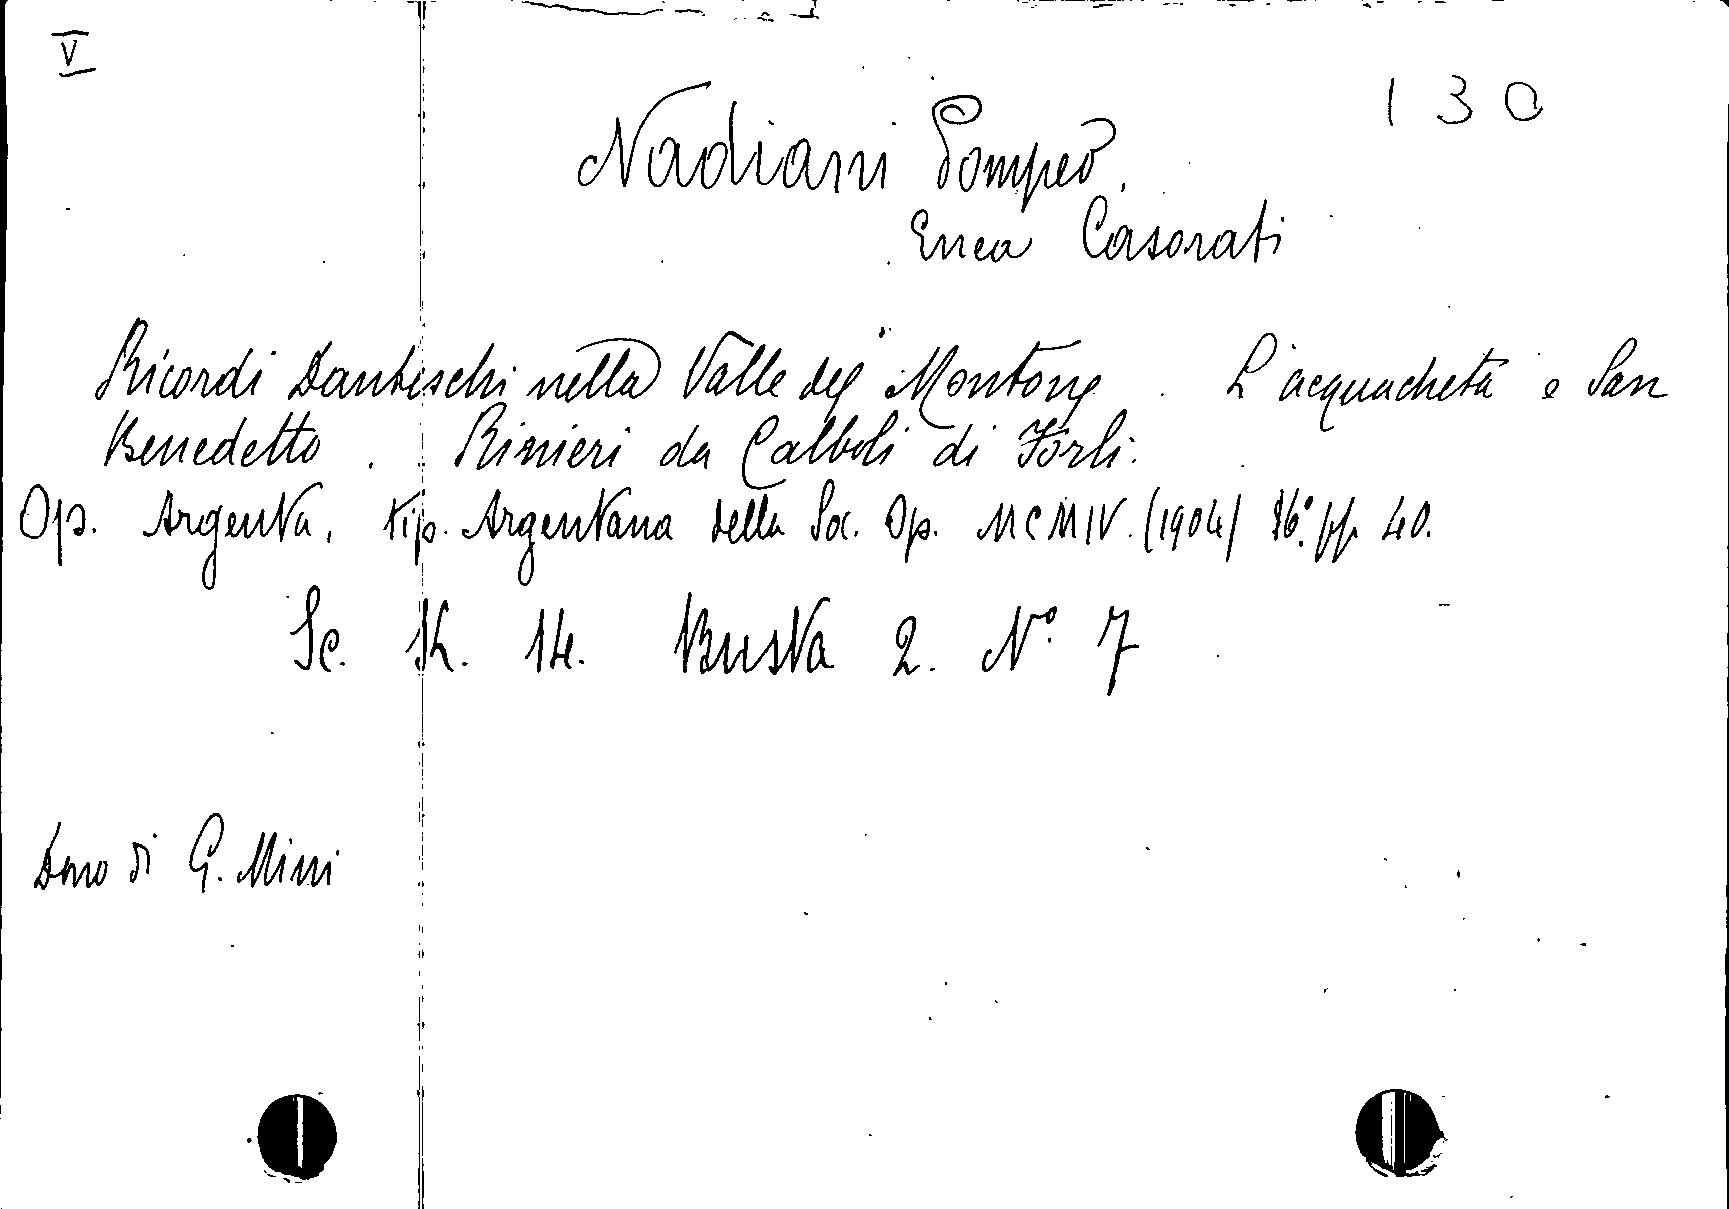 V
130
Nadiani Pompeo.
Enea Casorati
Ricordi Danteschi nella Valle del Montone. L'acquacheta e San
Benedetto. Rinieri da Calboli di Forlì.
Op. Argenta, tip. Argentana della Soc. Op. MCMIV. (1904) 16.° pp. 40.
Sc. K. 14. Busta 2. N.° 7
Dono di G. Mini